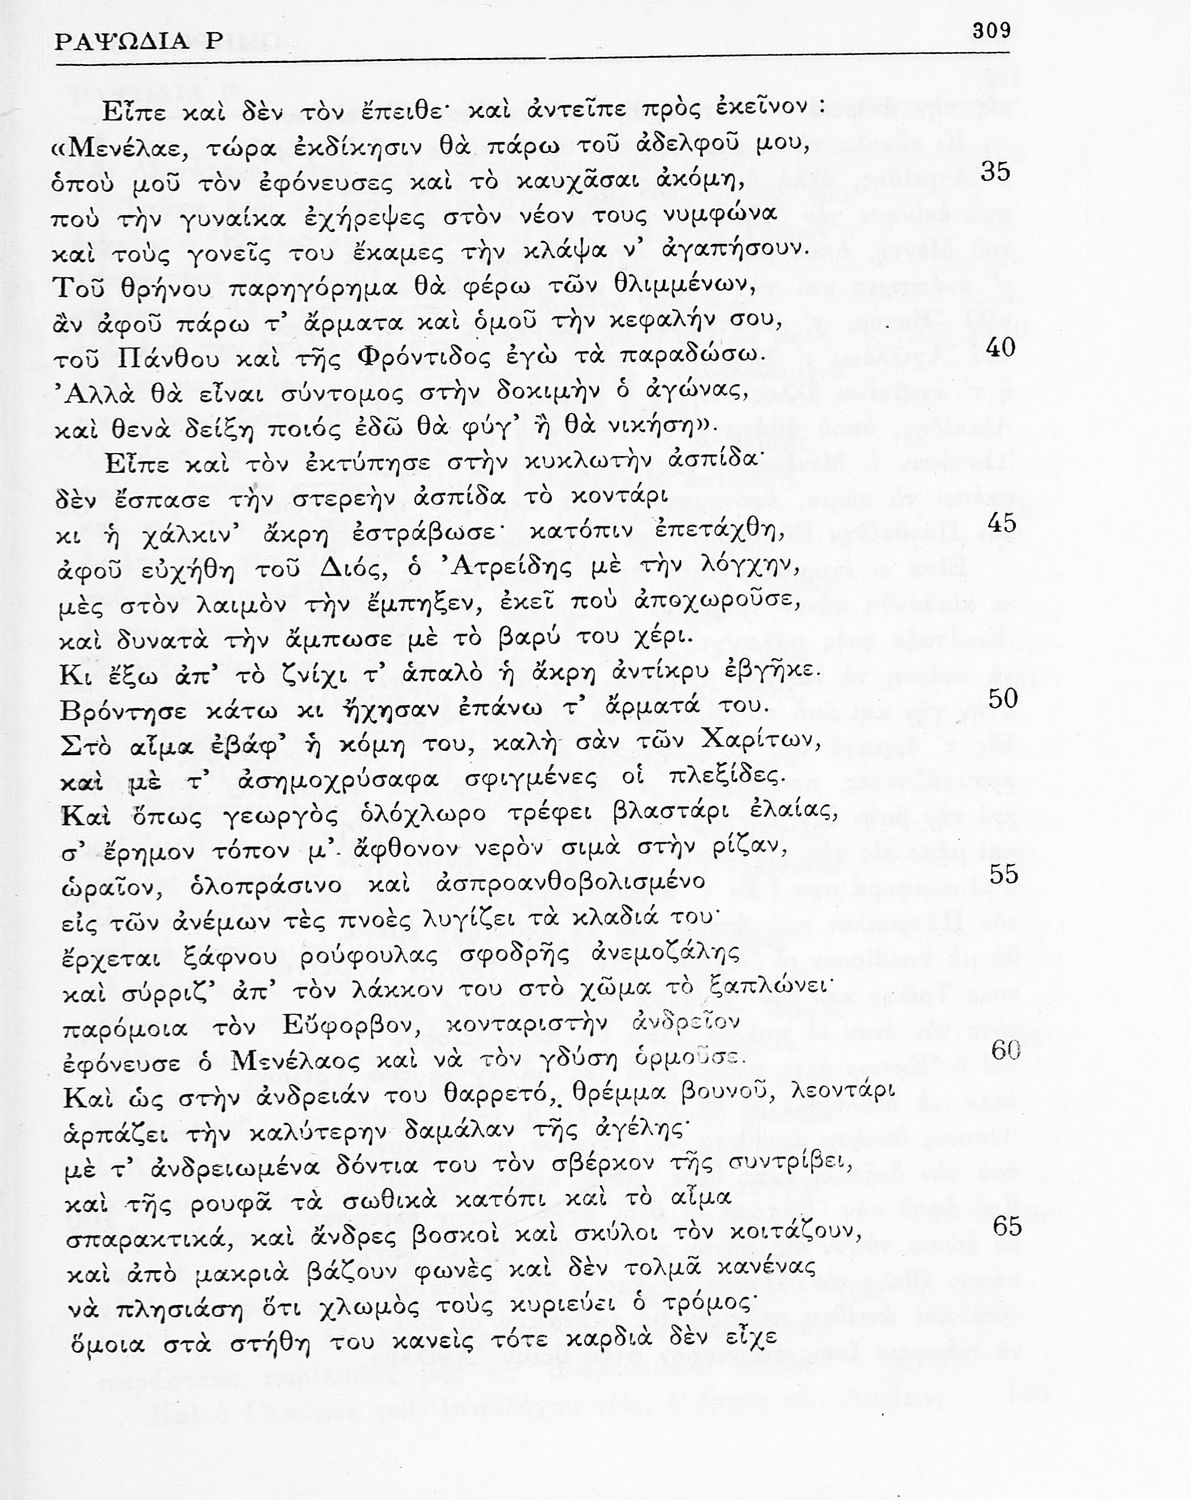 ΡΑΨΩΔΙΑ Ρ
309
Εἶπε καὶ δὲν τὸν ἔπειθε· καὶ ἀντεῖπε πρὸς ἐκεῖνον :
«Μενέλαε, τώρα ἐκδίκησιν θὰ πάρω τοῦ ἀδελφοῦ μου,
ὁποὺ μοῦ τὸν ἐφόνευσες καὶ τὸ καυχᾶσαι ἀκόμη, 35
ποὺ τὴν γυναίκα ἐχήρεψες στὸν νέον τους νυμφώνα
καὶ τοὺς γονεῖς του ἔκαμες τὴν κλάψα ν’ ἀγαπήσουν.
Τοῦ θρήνου παρηγόρημα θὰ φέρω τῶν θλιμμένων,
ἂν ἀφοῦ πάρω τ’ ἄρματα καὶ ὁμοῦ τὴν κεφαλήν σου,
τοῦ Πάνθου καὶ τῆς Φρόντιδος ἐγὼ τὰ παραδώσω. 40
Ἀλλὰ θὰ εἶναι σύντομος στὴν δοκιμὴν ὁ ἀγώνας,
καὶ θενὰ δείξη ποιός ἐδῶ θὰ φύγ’ ἢ θὰ νικήση».
Εἶπε καὶ τὸν ἐκτύπησε στὴν κυκλωτὴν ἀσπίδα·
δὲν ἔσπασε τὴν στερεὴν ἀσπίδα τὸ κοντάρι
κι ἡ χάλκιν’ ἄκρη ἐστράβωσε· κατόπιν ἐπετάχθη, 45
ἀφοῦ εὐχήθη τοῦ Διός, ὁ Ἀτρείδης μὲ τὴν λόγχην,
μὲς στὸν λαιμὸν τὴν ἔμπηξεν, ἐκεῖ ποὺ ἀποχωροῦσε,
καὶ δυνατὰ τὴν ἄμπωσε μὲ τὸ βαρύ του χέρι.
Κι ἔξω ἀπ’ τὸ ζνίχι τ’ ἁπαλὸ ἡ ἄκρη ἀντίκρυ ἐβγῆκε.
Βρόντησε κάτω κι ἤχησαν ἐπάνω τ’ ἄρματά του. 50
Στὸ αἷμα ἐβάφ’ ἡ κόμη του, καλὴ σὰν τῶν Χαρίτων,
καὶ μὲ τ’ ἀσημοχρύσαφα σφιγμένες οἱ πλεξίδες.
Καὶ ὅπως γεωργὸς ὁλόχλωρο τρέφει βλαστάρι ἐλαίας,
σ’ ἔρημον τόπον μ’ ἄφθονον νερὸν σιμὰ στὴν ρίζαν,
ὡραῖον, ὁλοπράσινο καὶ ἀσπροανθοβολισμένο 55
εἰς τῶν ἀνέμων τὲς πνοὲς λυγίζει τὰ κλαδιά του·
ἔρχεται ξάφνου ρούφουλας σφοδρῆς ἀνεμοζάλης
καὶ σύρριζ’ ἀπ’ τὸν λάκκον του στὸ χῶμα τὸ ξαπλώνει·
παρόμοια τὸν Εὔφορβον, κονταριστὴν ἀνδρεῖον
ἐφόνευσε ὁ Μενέλαος καὶ νὰ τὸν γδύση ὁρμοῦσε. 60
Καὶ ὡς στὴν ἀνδρειάν του θαρρετό, θρέμμα βουνοῦ, λεοντάρι
ἁρπάζει τὴν καλύτερην δαμάλαν τῆς ἀγέλης·
μὲ τ’ ἀνδρειωμένα δόντια του τὸν σβέρκον τῆς συντρίβει,
καὶ τῆς ρουφᾶ τὰ σωθικὰ κατόπι καὶ τὸ αἷμα
σπαρακτικά, καὶ ἄνδρες βοσκοὶ καὶ σκύλοι τὸν κοιτάζουν, 65
καὶ ἀπὸ μακριὰ βάζουν φωνὲς καὶ δὲν τολμᾶ κανένας
νὰ πλησιάση ὅτι χλωμὸς τοὺς κυριεύει ὁ τρόμος·
ὅμοια στὰ στήθη του κανεὶς τότε καρδιὰ δὲν εἶχε